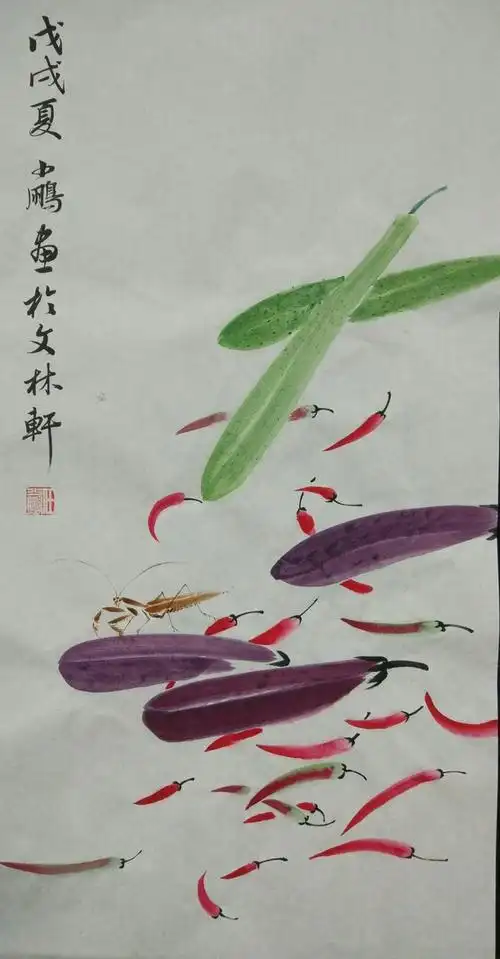 戊戌夏小鵬画於文林軒